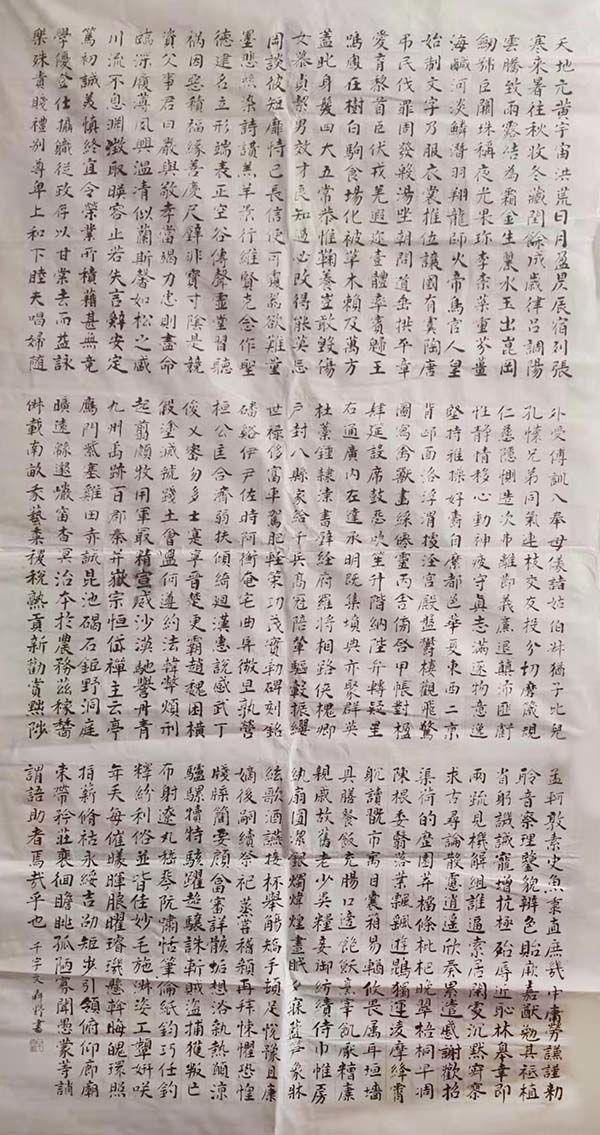 天地元黃宇宙洪荒日月盈昃辰宿列張
寒來暑往秋收冬藏閏餘成歲律呂調陽
雲騰致雨露結為霜金生麗水玉出崑岡
劒號巨闕珠稱夜光果珍李柰菜重芥薑
海鹹河淡鱗潛羽翔龍師火帝鳥官人皇
始制文字乃服衣裳推位讓國有虞陶唐
弔民伐罪周發殷湯坐朝問道垂拱平章
愛育黎首臣伏戎羌遐邇壹體率賓歸王
鳴鳳在樹白駒食場化被草木賴及萬方
蓋此身髮四大五常恭惟鞠養豈敢毀傷
女慕貞絜男效才良知過必改得能莫忘
罔談彼短靡恃己長信使可覆器欲難量
墨悲絲染詩讚羔羊景行維賢克念作聖
德建名立形端表正空谷傳聲虛堂習聽
禍因惡積福緣善慶尺璧非寶寸陰是競
資父事君曰嚴與敬孝當竭力忠則盡命
臨深履薄夙興溫凊似蘭斯馨如松之盛
川流不息淵澂取暎容止若思言辭安定
篤初誠美慎終宜令榮業所基藉甚無竟
學優登仕攝職從政存以甘棠去而益詠
樂殊貴賤禮別尊卑上和下睦夫唱婦隨
外受傅訓入奉母儀諸姑伯叔猶子比兒
孔懷兄弟同氣連枝交友投分切磨箴規
仁慈隱惻造次弗離節義廉退顛沛匪虧
性靜情逸心動神疲守真志滿逐物意移
堅持雅操好爵自縻都邑華夏東西二京
背邙面洛浮渭據涇宮殿盤鬱樓觀飛驚
圖寫禽獸畫綵仙靈丙舍傍啓甲帳對楹
肆筵設席鼓瑟吹笙升階納陛弁轉疑星
右通廣內左達承明既集墳典亦聚群英
杜藁鍾隸漆書壁經府羅將相路俠槐卿
戶封八縣家給千兵高冠陪輦驅轂振纓
世祿侈富車駕肥輕策功茂實勒碑刻銘
磻谿伊尹佐時阿衡奄宅曲阜微旦孰營
桓公匡合濟弱扶傾綺迴漢惠說感武丁
俊乂密勿多士寔寧晉楚更霸趙魏困橫
假塗滅虢踐土會盟何遵約法韓弊煩刑
起翦頗牧用軍最精宣威沙漠馳譽丹青
九州禹跡百郡秦并嶽宗恒岱禪主云亭
鴈門紫塞雞田赤誠昆池碣石鉅野洞庭
曠遠緜邈巖岫杳冥治本於農務茲稼穡
俶載南畝我藝黍稷稅熟貢新勸賞黜陟
孟軻敦素史魚秉直庶幾中庸勞謙謹勅
聆音察理鑒貌辨色貽厥嘉猷勉其祗植
省躬譏誡寵增抗極殆辱近恥林皋幸即
兩疏見機解組誰逼索居閑處沉默寂寥
求古尋論散慮逍遙欣奏累遣慼謝歡招
渠荷的歷園莽抽條枇杷晚翠梧桐早凋
陳根委翳落葉飄颻遊鵾獨運凌摩絳霄
耽讀翫市寓目囊箱易輶攸畏屬耳垣墻
具膳餐飯充腸口適飽飫烹宰飢厭糟糠
親戚故舊老少異糧妾御紡績侍巾帷房
紈扇圓潔銀燭煒煌晝眠夕寐藍笋象牀
絃歌酒讌接杯舉觴矯手頓足悅豫且康
嫡後嗣續祭祀蒸嘗稽顙再拜悚懼恐惶
牋牒簡要顧答審詳骸垢想浴執熱願涼
驢騾犢特駭躍超驤誅斬賊盜捕獲叛亡
布射遼丸嵇琴阮嘯恬筆倫紙鈞巧任釣
釋紛利俗並皆佳妙毛施淑姿工顰妍咲
年矢每催曦暉朗曜璿璣懸斡晦魄環照
指薪修祜永綏吉劭矩步引領俯仰廊廟
束帶矜莊徘徊瞻眺孤陋寡聞愚蒙等誚
謂語助者焉哉乎也 千字文